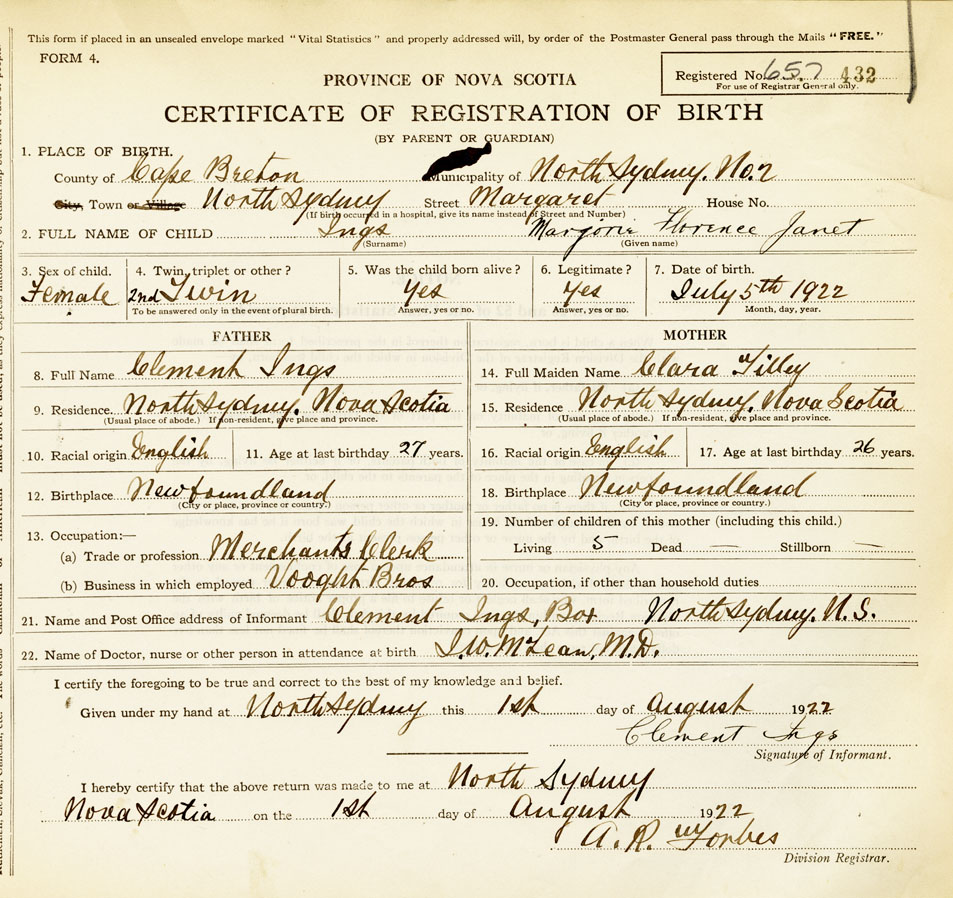 This form if placed in an unsealed envelope marked "Vital Statistics" and properly addressed will, by order of the Postmaster General pass through the Mails "FREE."
FORM 4.
Registered No. 657 432
For use of Registrar General only.
PROVINCE OF NOVA SCOTIA
CERTIFICATE OF REGISTRATION OF BIRTH
(BY PARENT OR GUARDIAN)
1. PLACE OF BIRTH.
County of Cape Breton Municipality of North Sydney. No. 2
City, Town or Village North Sydney Street Margaret House No.
(If birth occurred in a hospital, give its name instead of Street and Number)
2. FULL NAME OF CHILD Ings Marjorie Florence Janet
(Surname) (Given name)
3. Sex of child. 4. Twin, triplet or other? 5. Was the child born alive? 6. Legitimate? 7. Date of birth.
Female 2nd Twin Yes Yes July 5th 1922
To be answered only in the event of plural birth. Answer, yes or no. Answer, yes or no. Month, day, year.
FATHER
8. Full Name Clement Ings
9. Residence. North Sydney. Nova Scotia
(Usual place of abode.) If non-resident, give place and province.
10. Racial origin English 11. Age at last birthday 27 years.
12. Birthplace Newfoundland
(City or place, province or country.)
13. Occupation:—
(a) Trade or profession Merchants Clerk
(b) Business in which employed Vooght Bros
MOTHER
14. Full Maiden Name Clara Tilley
15. Residence North Sydney, Nova Scotia
(Usual place of abode.) If non-resident, give place and province.
16. Racial origin English 17. Age at last birthday 26 years.
18. Birthplace Newfoundland
(City or place, province or country.)
19. Number of children of this mother (including this child.)
Living 5 Dead — Stillborn —
20. Occupation, if other than household duties
21. Name and Post Office address of Informant Clement Ings, Box North Sydney. N.S.
22. Name of Doctor, nurse or other person in attendance at birth J.W. McLean, M.D.
I certify the foregoing to be true and correct to the best of my knowledge and belief.
Given under my hand at North Sydney this 1st day of August 1922
Clement Ings
Signature of Informant.
I hereby certify that the above return was made to me at North Sydney
Nova Scotia on the 1st day of August 1922
A. R. Forbes
Division Registrar.